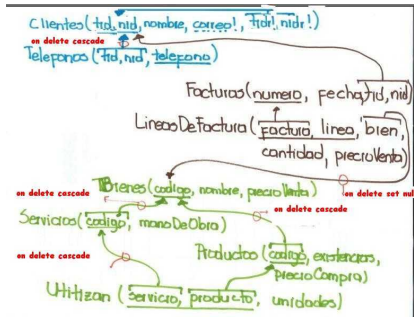 Clientes(tid,nid,nombre, correo!, tidr!,nidr!)
on delete cascade
Telefonos (tid,nid, telefono)
Facturas(numero, fecha,tid,nid)
LineasDeFactura(factura, linea, bien,
cantidad, precioVenta)
on delete cascade
on delete set nul
Bienes(codigo, nombre, precioVenta)
on delete cascade
Servicios(codigo, manoDeObra)
on delete cascade
Productos (codigo, existencias,
precioCompra)
Utilizan (servicio, producto, unidades)